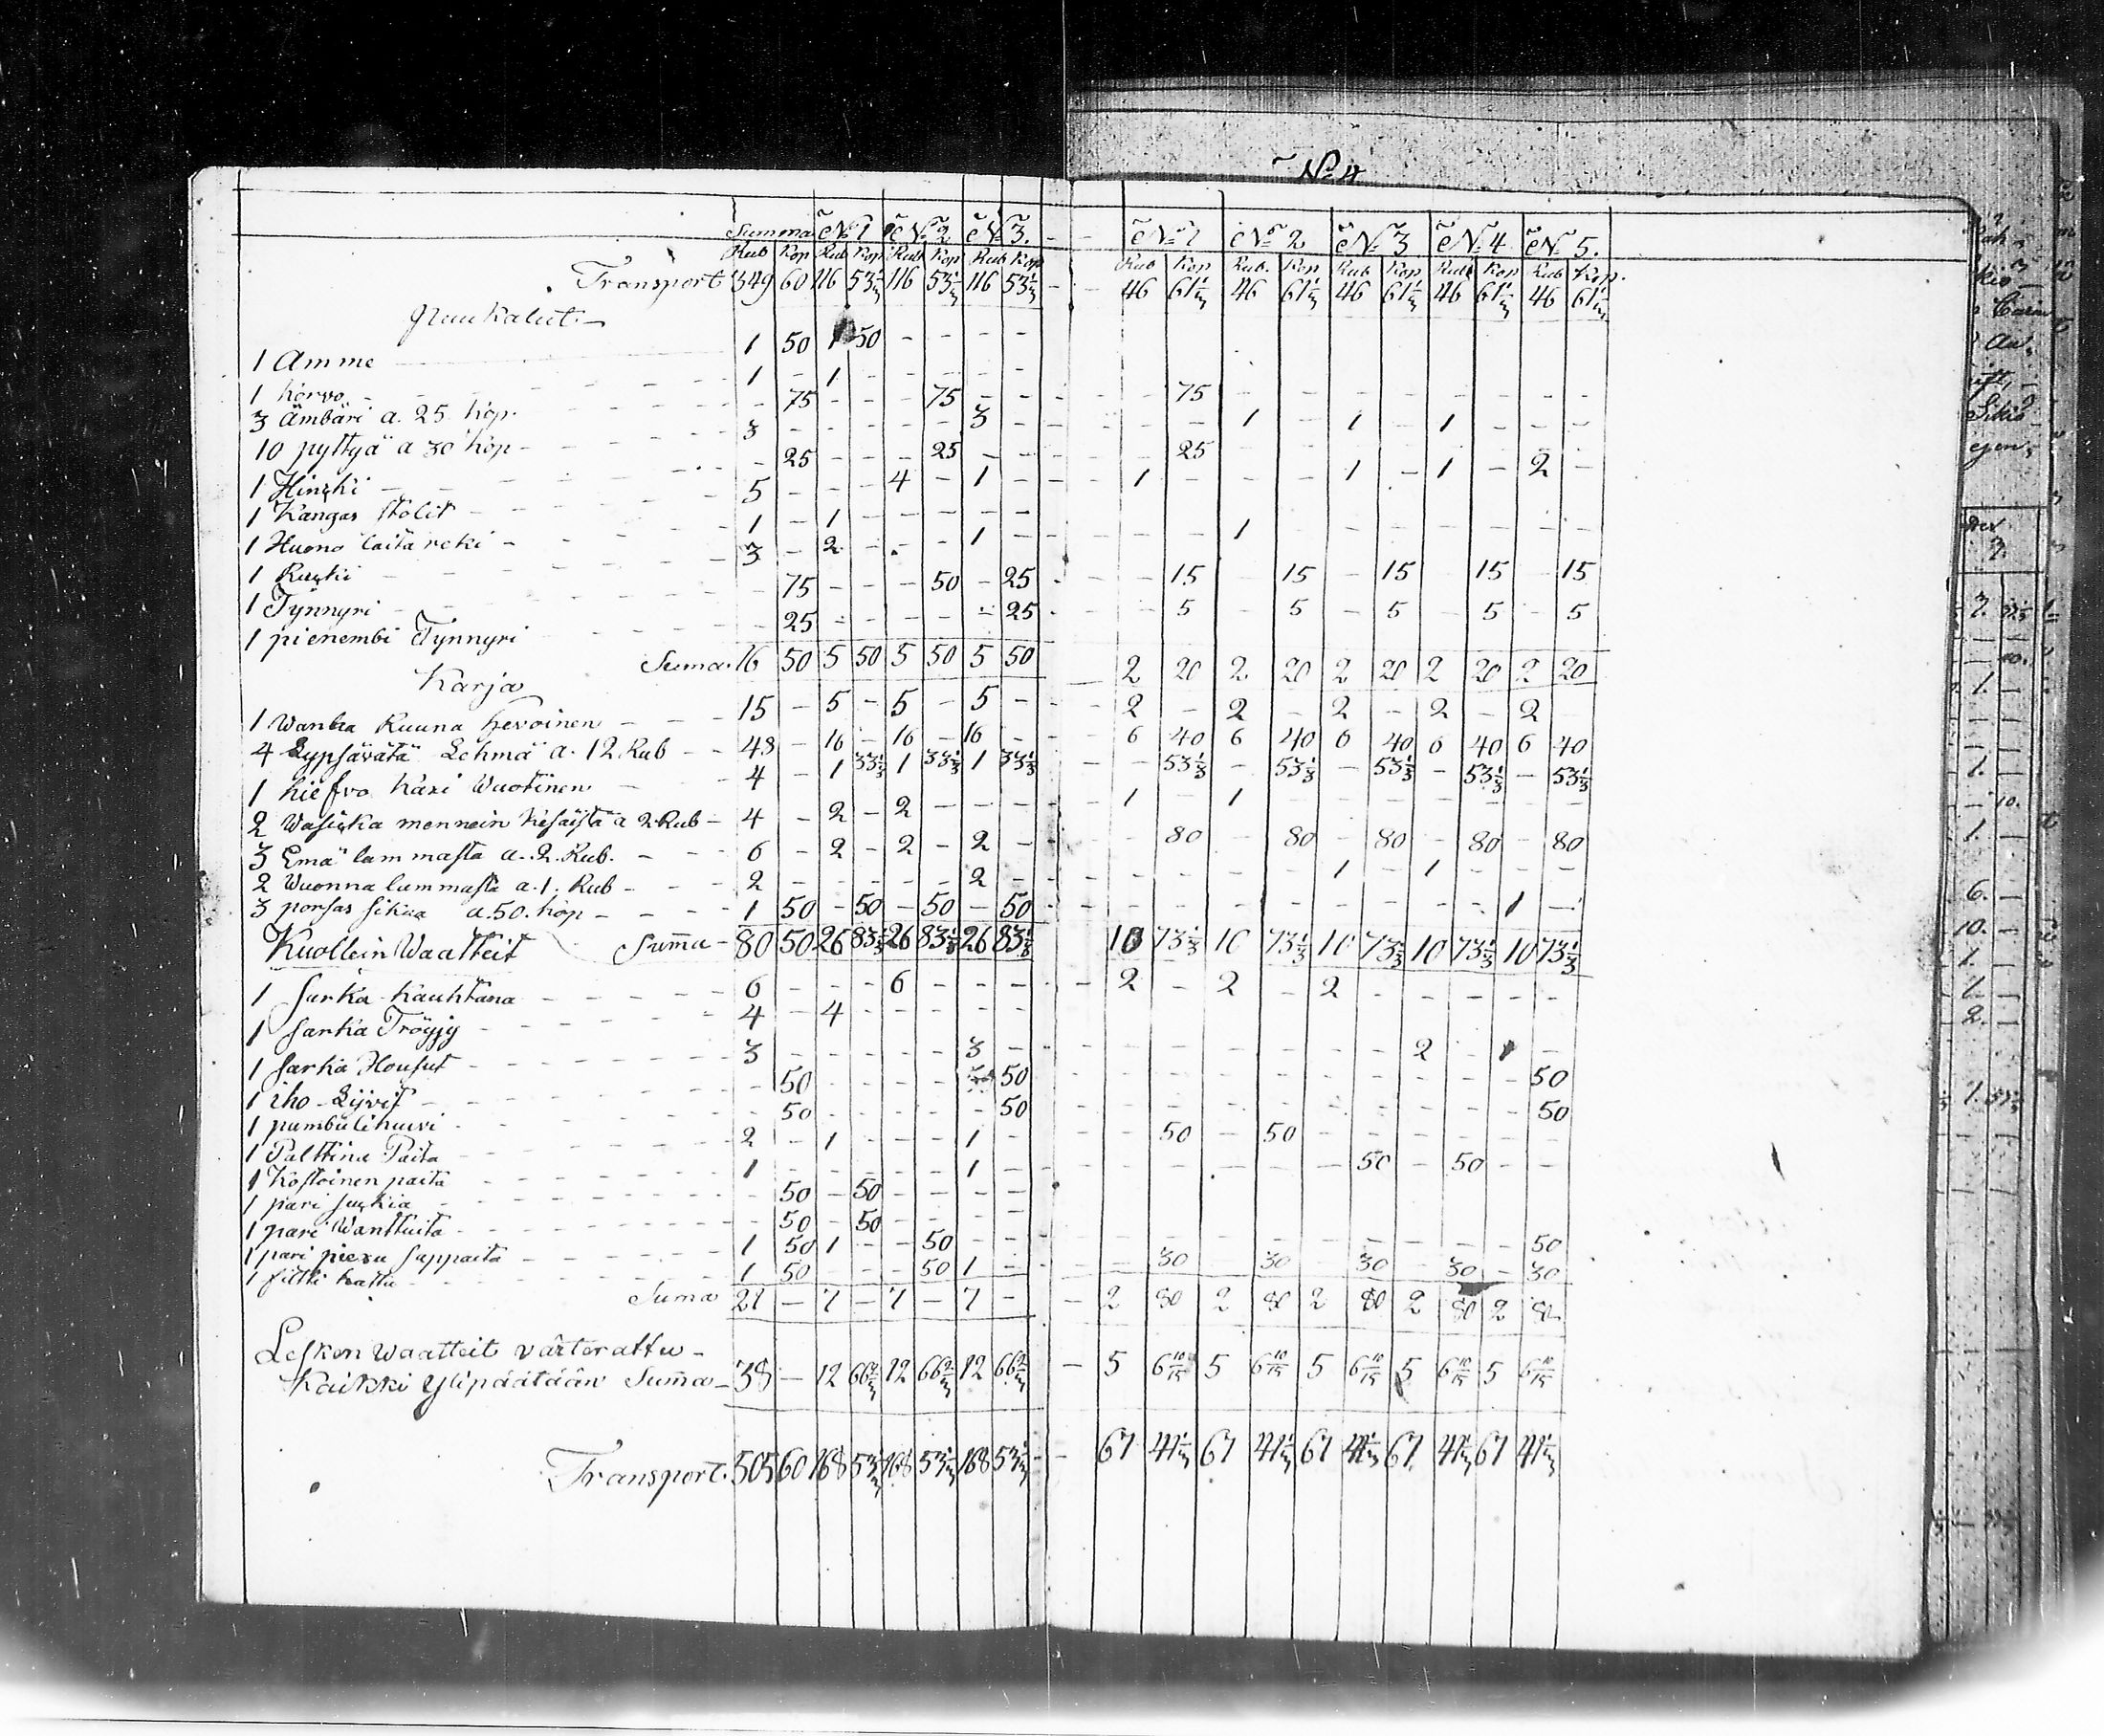 No 4
Summa No 1 No 2 No 3. No 1 No 2 No 3 No 4 No 5.
Rub Kop Rub Kop Rub Kop Rub Kop Rub Kop Rub. Kop Rub Kop Rub Kop Rub Kop.
Transport 349 60 116 53⅓ 116 53⅓ 116 53⅓ - - 46 61⅓ 46 61⅓ 46 61⅓ 46 61⅓ 46 61⅓
Puukalut
1 Amme 1 50 1 50 - - - -
1 korvo 1 - 1 - - - - -
3 Ämbäri a. 25 kop. - 75 - - - 75 - - 75 - - - - - - - -
10 pyttyä a 30 kop - 3 - - - - - 3 - - - 1 - 1 - 1 - - -
1 Hinkki - 25 - - - 25 - - 25
1 Kangas stolit 5 - - - 4 - 1 - - 1 - - - 1 - 1 - 2 -
1 Huono laita reki - 1 - 1 - - - - -
1 Ruski 3 - 2 - - - 1 - - - 1 - - - - - -
1 Tynnyri - 75 - - - 50 - 25 - - 15 - 15 - 15 - 15 - 15
1 pienembi Tynnyri - 25 - - - - - 25 - 5 - 5 - 5 - 5 - 5
Suma 16 50 5 50 5 50 5 50 2 20 2 20 2 20 2 20 2 20
Karja
1 Wanha Ruuna hevoinen 15 - 5 - 5 - 5 - 2 - 2 - 2 - 2 - 2
4 Lypsävätä Lehmä a. 12 Rub 48 - 16 - 16 - 16 6 40 6 40 6 40 6 40 6 40
1 hiefvo kaxi Wuotinen 4 - 1 33⅓ 1 33⅓ 1 33⅓ - 53⅓ - 53⅓ - 53⅓ - 53⅓ - 53⅓
2 Wasicka mennein kesäistä a 2 Rub - 4 - 2 - 2 - - - 1 - 1 - - - - - -
3 Emä lammasta a. 2. Rub. 6 - 2 - 2 - 2 - - 80 - 80 - 80 - 80 - 80
2 Wuonna lammasta a. 1. Rub 2 - - - - - 2 - - - - - 1 - 1 - - -
3 porsas sikaa a. 50. kop 1 50 - 50 - 50 - 50 - - - - - - - - 1 -
Kuollein Waatteit Suma 80 50 26 83⅓ 26 83⅓ 26 83⅓ 10 73⅓ 10 73⅓ 10 73⅓ 10 73⅓ 10 73⅓
1 Sarka Kauhtana 6 - - - 6 - - - - 2 - 2 - 2 - - - - -
1 Sarka Tröyjy 4 - 4 - - - - -
1 Sarka Housut 3 - - - - - 3 - - - - - - - 2 - 1 -
1 iho-Lijvit - 50 - - - - - 50 - - - - - - - - 50
1 pumbulihuivi - 50 - - - - - 50 - - - - - - - - 50
1 Palttina Paita 2 - 1 - - - 1 - - 50 - 50 - - - - - -
1 Rostoinen paita 1 - - - - - 1 - - - - - - 50 - 50 - -
1 pari suckia - 50 - 50 - - - -
1 pari Wanttuita - 50 - 50 - - - -
1 pari piexu Sappaita 1 50 1 - - 50 - - - - - - - - - 50
1 filtti hattu 1 50 - - - 50 1 - - 30 - 30 - 30 - 30 - 30
Suma 21 - 7 - 7 - 7 - - 2 80 2 80 2 80 2 80 2 80
Lesken Waatteit värterattu -
Kaikki Ylipäätään Suma 38 - 12 66⅔ 12 66⅔ 12 66⅔ - 5 6 10/15 5 6 10/15 5 6 10/15 5 6 10/15 5 6 10/15
Transport. 505 60 168 53⅓ 168 53⅓ 168 53⅓ - - 67 41⅓ 67 41⅓ 67 41⅓ 67 41⅓ 67 41⅓